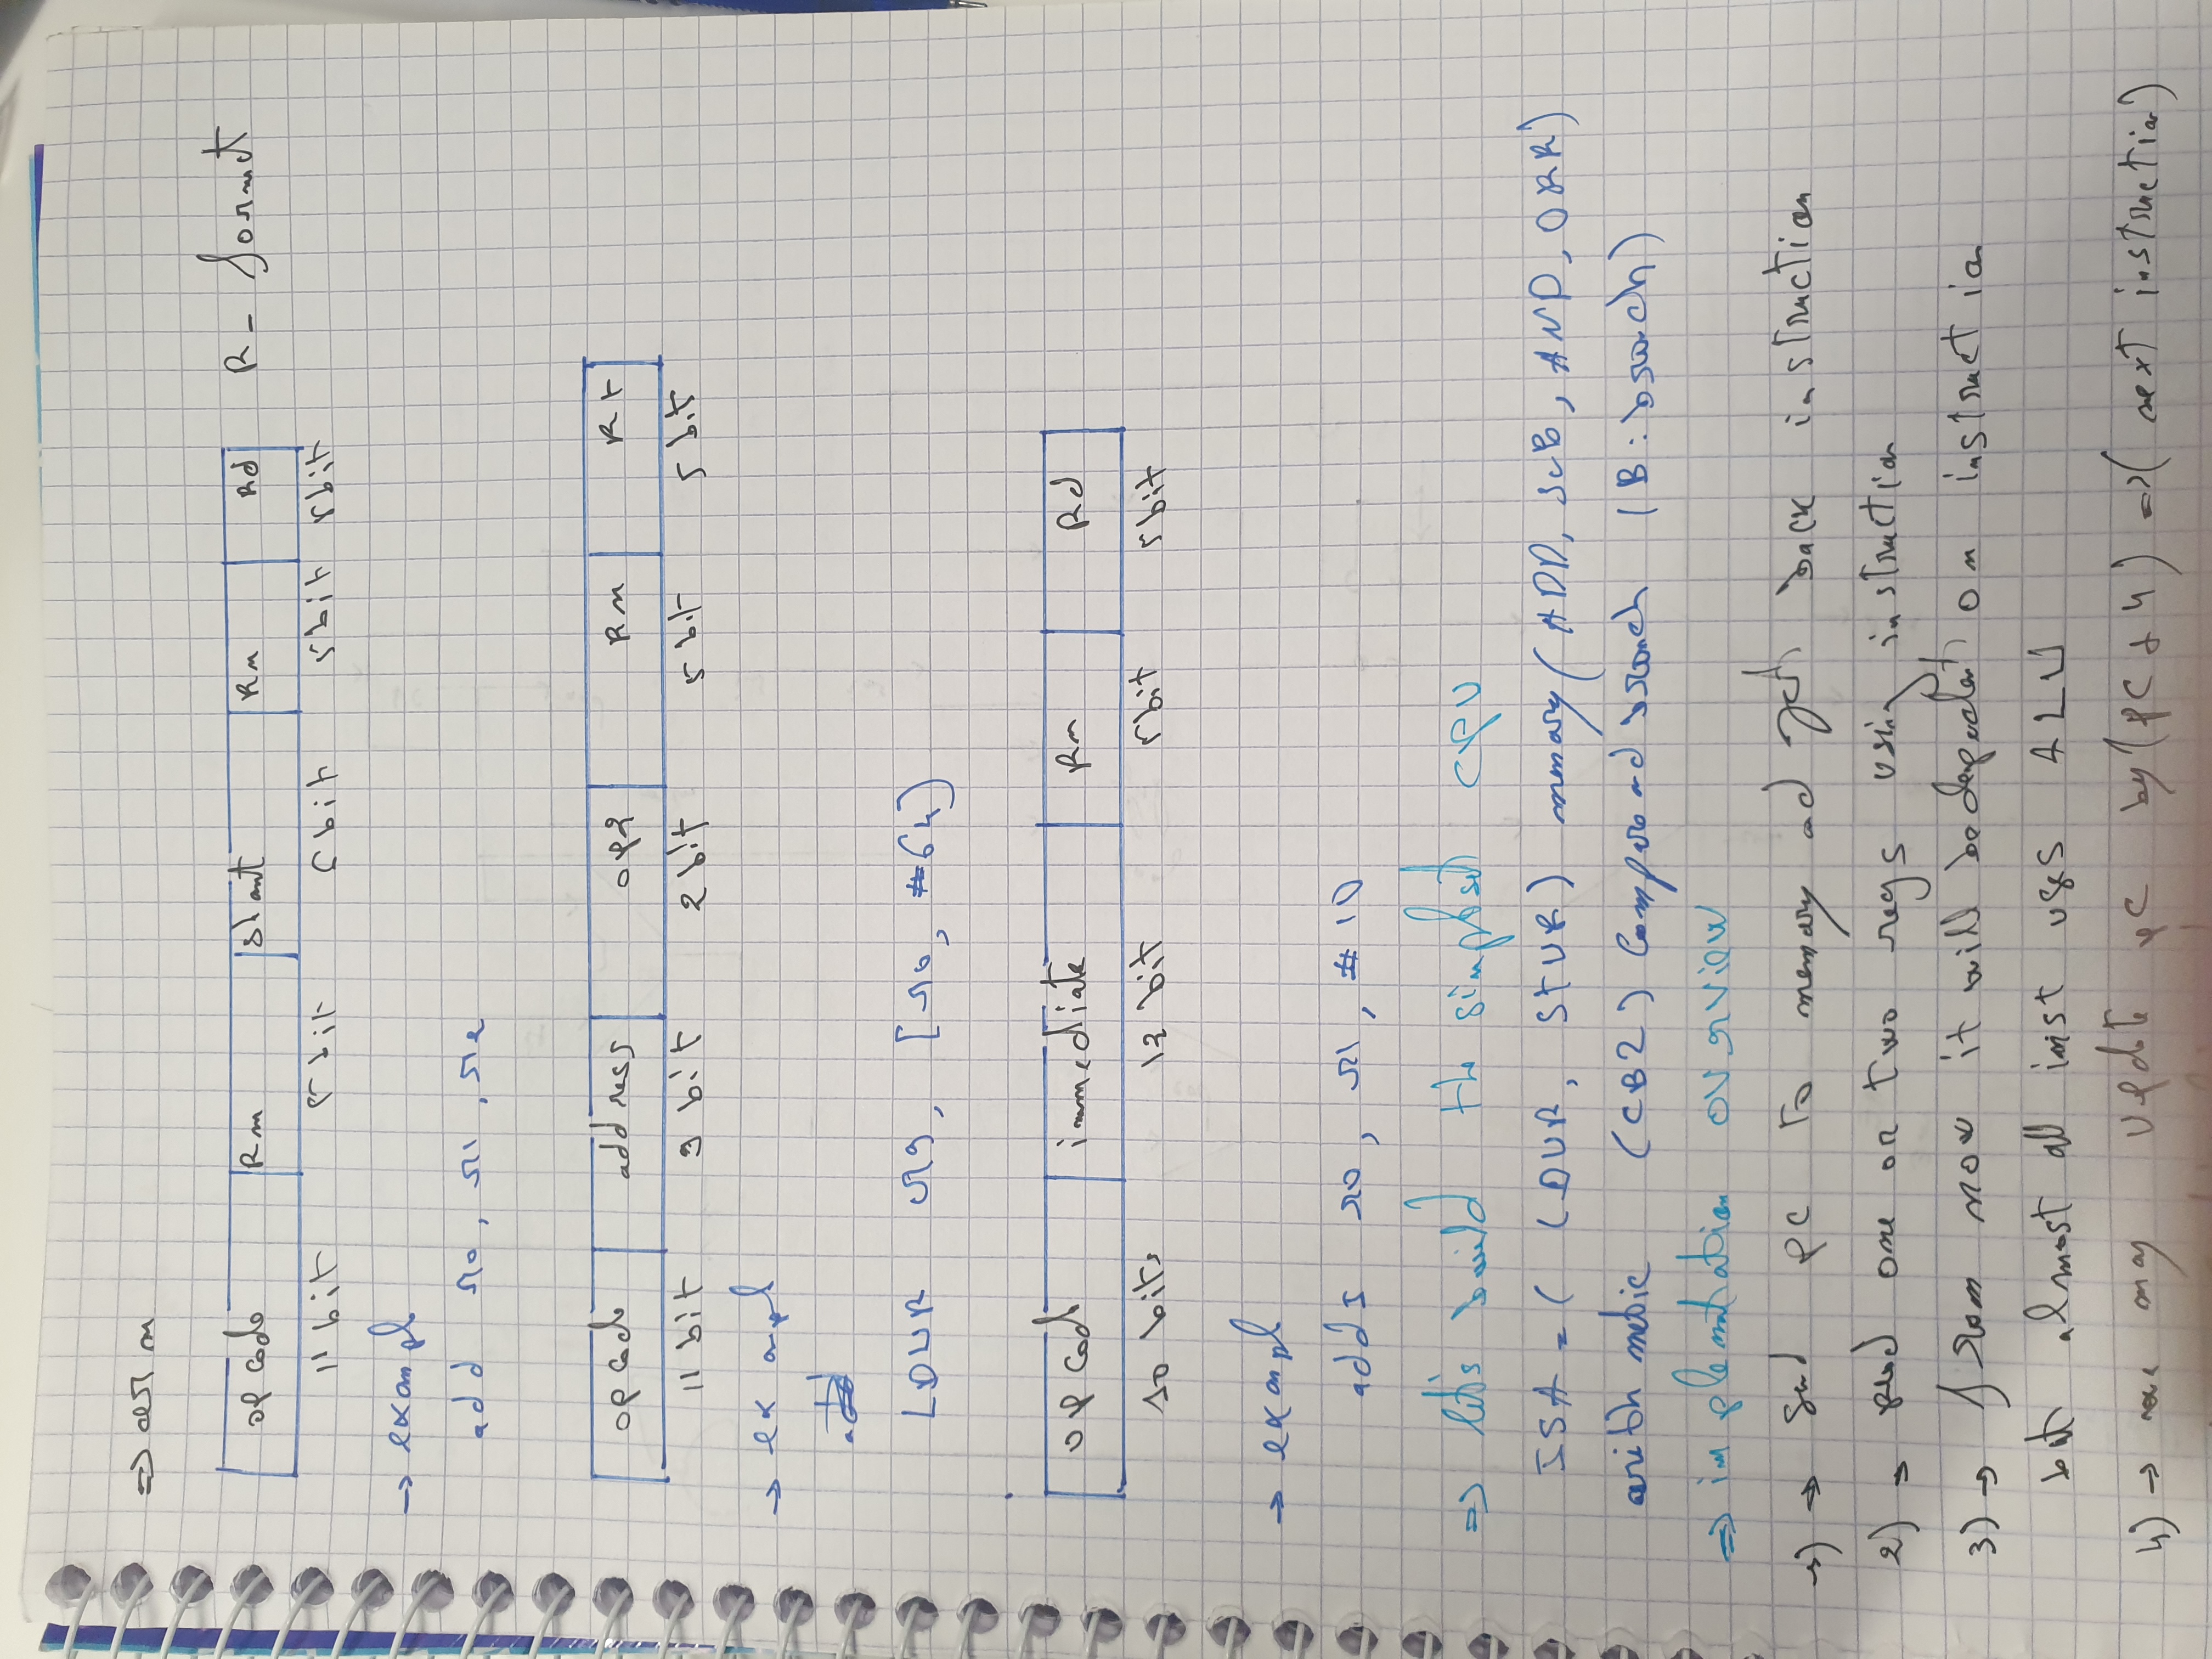 => arm
opcode Rm shamt Rn Rd R - format
11 bit 5 bit 6 bit 5 bit 5 bit
-> exampl
add r0, r1, r2
opcode address op2 Rn Rt
11 bit 9 bit 2 bit 5 bit 5 bit
-> exampl
add
LDUR r9, [r0, #64]
opcode immediate Rn Rd
10 bits 12 bit 5 bit 5 bit
-> exampl
adds r0, r1, #10
=> let's build the simplest CPU
ISA = ( (DUR, STUR) memory (ADD, SUB, AND, ORR)
arithmetic (CBZ) Compare and branch (B: branch)
=> implementation overview
1) -> Send PC to memory and get back instruction
2) -> Read one or two regs using instruction
3) -> from now it will be dependent on instruction
but almost all inst uses ALU
4) -> we may update PC by (PC + 4) => (next instruction)